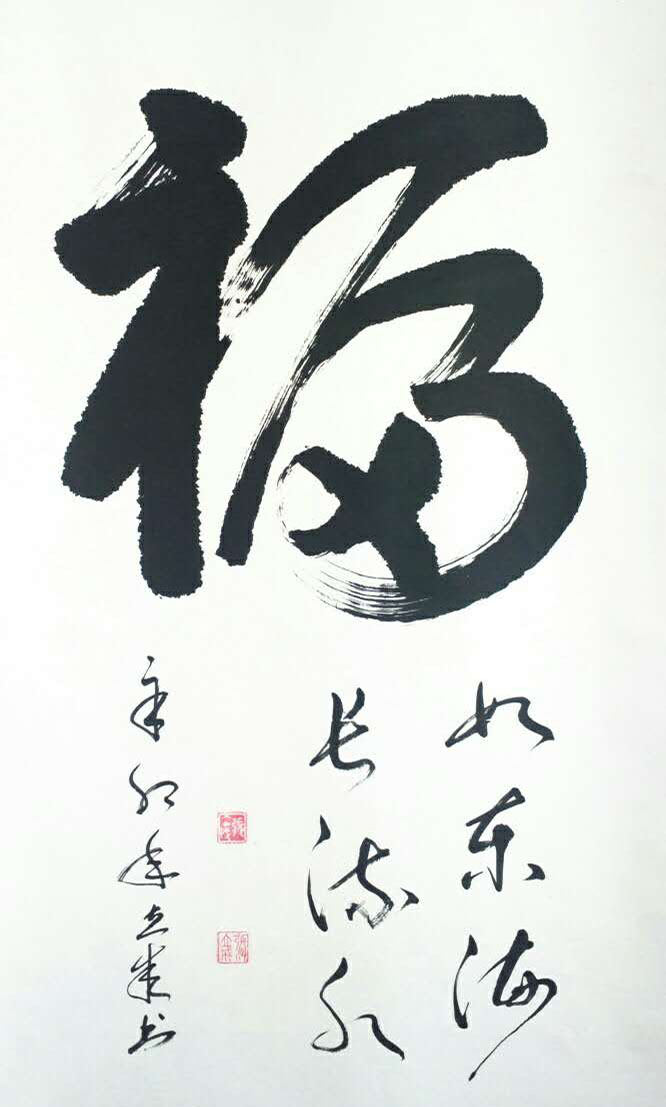 福
如东海
长流水
辛卯年立成书